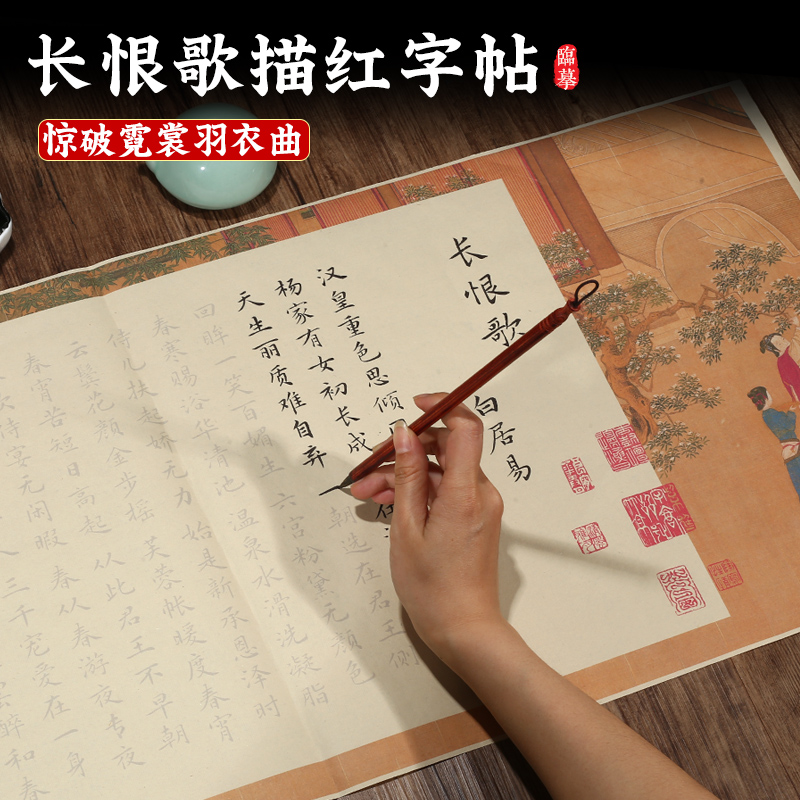 长恨歌描红字帖
臨摹
惊破霓裳羽衣曲
长恨歌 白居易
汉皇重色思倾
杨家有女初长成
天生丽质难自弃 一朝选在君王侧
回眸一笑百媚生 六宫粉黛无颜色
春寒赐浴华清池 温泉水滑洗凝脂
侍儿扶起娇无力 始是新承恩泽时
云鬓花颜金步摇 芙蓉帐暖度春宵
春宵苦短日高起 从此君王不早朝
欢侍宴无闲暇 春从春游夜专夜
人 三千宠爱在一身
醉和春